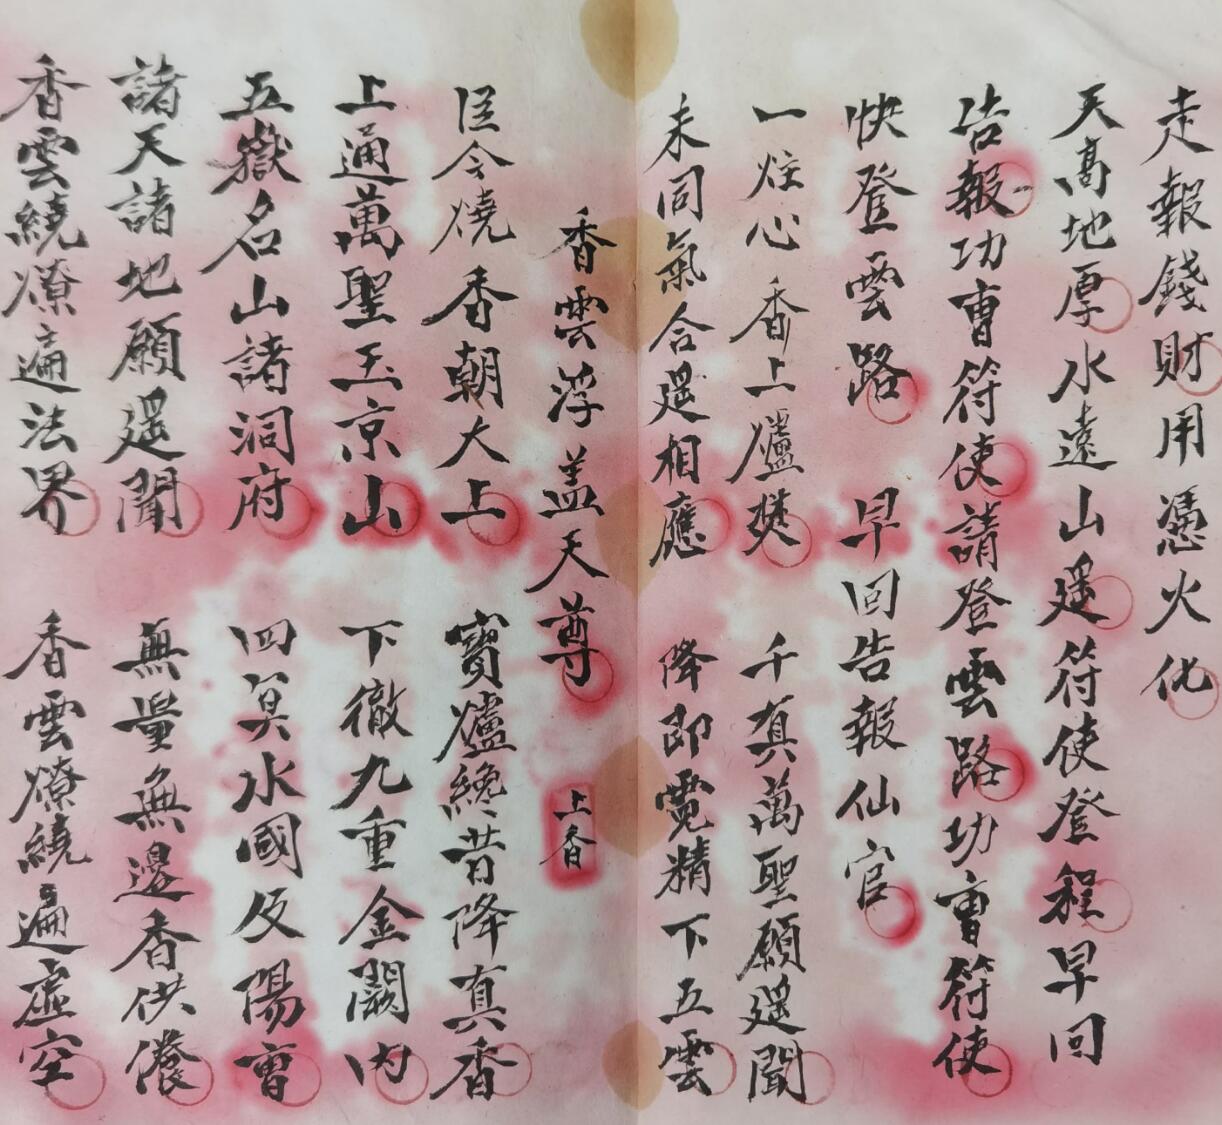 走報錢財用憑火化
天高地厚水遠山遥符使登程早回
告報功曹符使請登雲路功曹符使
快登雲路 早回告報仙官
一炷心香上爐焚 千真萬聖願遥聞
未同氣合遥相應 降即霓精下五雲
香雲浮盖天尊 上香
臣今燒香朝大上 寶爐纔昔降真香
上通萬聖玉京山 下徹九重金闕内
五嶽名山諸洞府 四冥水國及陽曹
諸天諸地願遥聞 無量無邊香供養
香雲繞燎遍法界 香雲燎繞遍虛空